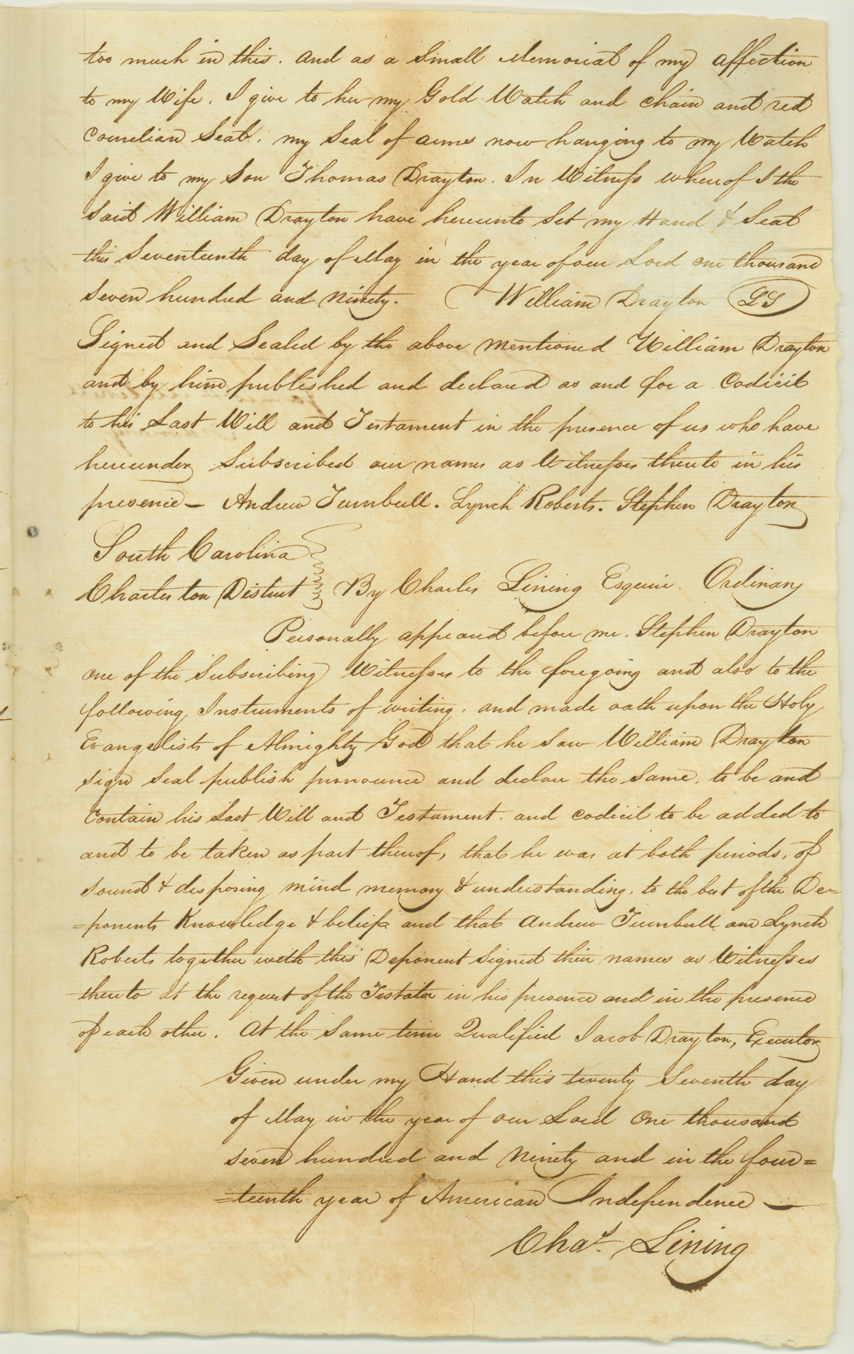 too much in this. And as a Small Memorial of my affection
to my Wife. I give to her my Gold Watch and chain and red
Cornelian Seal. my Seal of arms now hanging to my Watch
I give to my Son Thomas Drayton. In Witness whereof I the
Said William Drayton have hereunto Set my Hand & Seal
this Seventeenth day of May in the year of our Lord one thousand
Seven hundred and Ninety. William Drayton LS
Signed and Sealed by the above mentioned William Drayton
and by him published and declared as and for a Codicil
to his Last Will and Testament in the presence of us who have
hereunder Subscribed our names as Witnesses thereto in his
presence — Andrew Turnbull. Lynch Roberts. Stephen Drayton
South Carolina
Charleston District By Charles Lining Esquire Ordinary
Personally appeared before me. Stephen Drayton
one of the Subscribing Witnesses to the foregoing and also to the
following Instruments of writing. and made oath upon the Holy
Evangelists of Almighty God that he Saw William Drayton
Sign Seal publish pronounce and declare the Same. to be and
Contain his Last Will and Testament. and codicil to be added to
and to be taken as part thereof, that he was at both periods, of
Sound & disposing mind memory & understanding. to the best of the De-
=ponents Knowledge & belief and that Andrew Turnbull and Lynch
Roberts together with this Deponent Signed their names as Witnesses
thereto at the request of the Testator in his presence and in the presence
of each other. At the Same time Qualified Jacob Drayton, Executor
Given under my Hand this twenty Seventh day
of May in the year of our Lord One thousand
Seven hundred and Ninety and in the four=
=teenth year of American Independence —
Chas. Lining